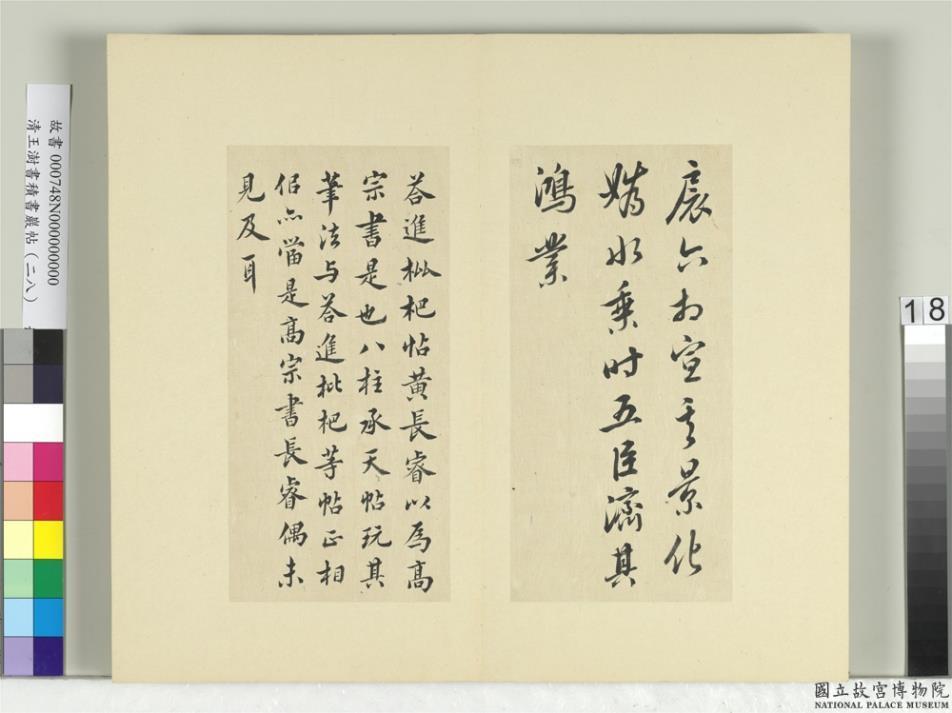 宸六相宣其景化
媯水乘时五臣濟其
鴻業
荅進枇杷帖黄長睿以為髙
宗書是也八柱承天帖玩其
筆法与荅進枇杷等帖正相
佀亦當是髙宗書長睿偶未
見及耳
故書 000748N000000000
清王澍書積書巖帖(二八)
18
國立故宮博物院
NATIONAL PALACE MUSEUM